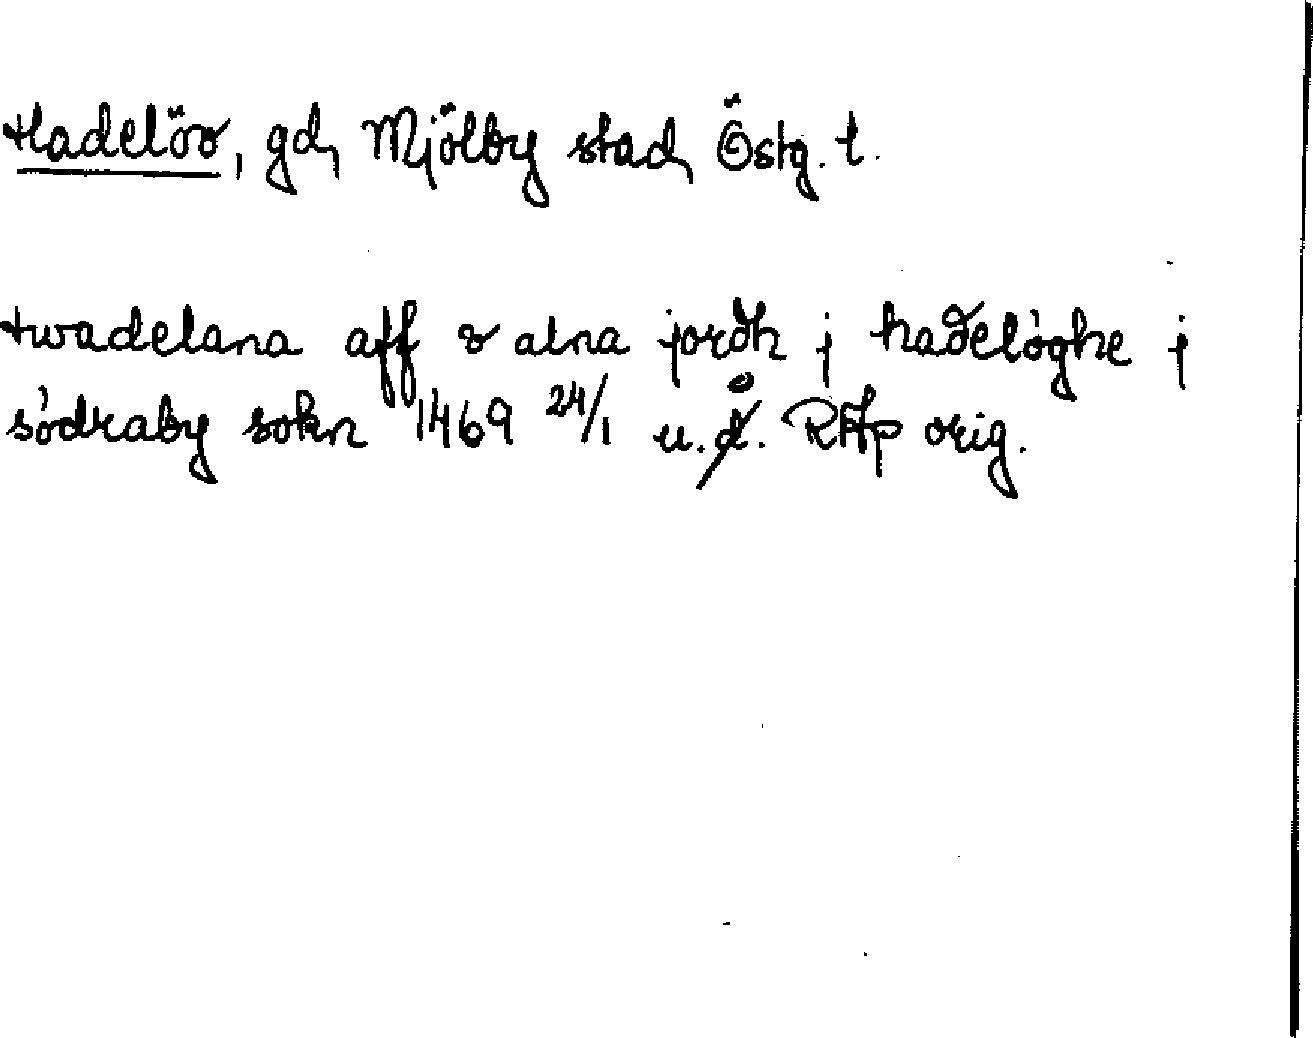 Hadelöv, gd, Mjölby stad, Östg. t.
twadelana aff v alna jordh j hadelóghe j
södraby sokn 1469 24/1 u.o. RAp orig.